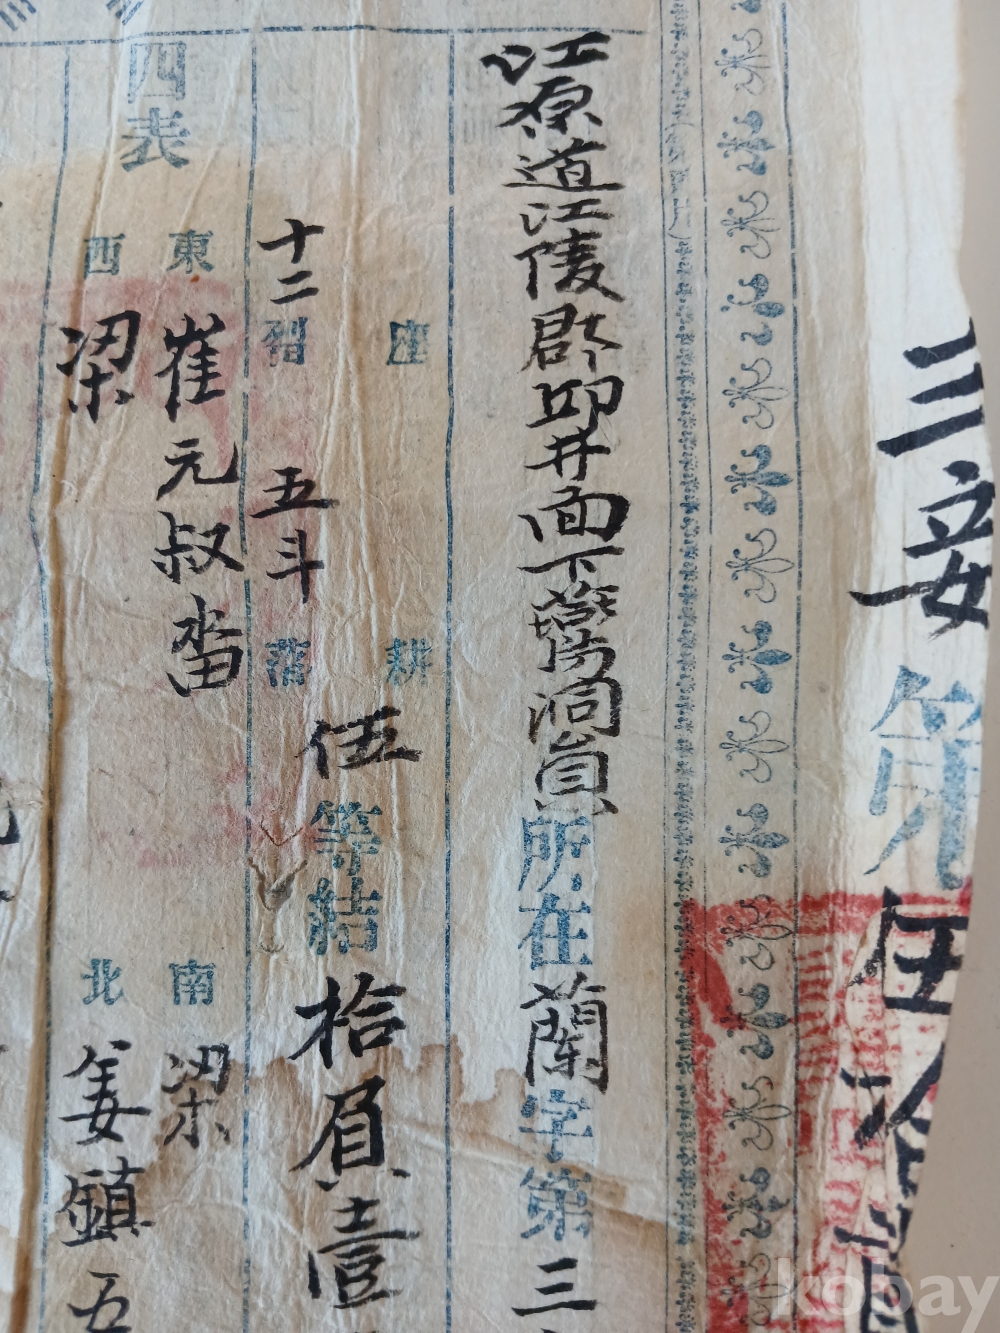 三安第
江原道江陵郡邱井面下 洞員所在蘭字第三
座 耕 伍等結拾負壹
十二 五斗落
四表
東 崔元叔畓 南 梁
西 梁 北 姜鎭五
kobay